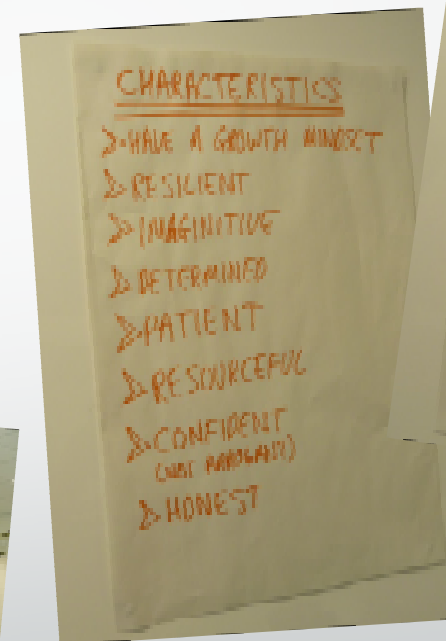 CHARACTERISTICS
HAVE A GROWTH MINDSET
RESILIENT
IMAGINITIVE
DETERMINED
PATIENT
RESOURCEFUL
CONFIDENT
(NOT ARROGANT)
HONEST